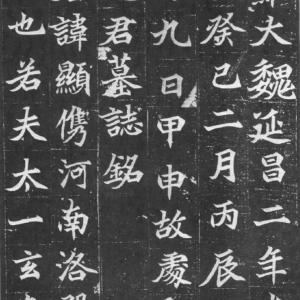 大魏延昌二年
癸巳二月丙辰
九日甲申故處
君墓誌銘
諱顯儁河南洛
也若夫太一玄